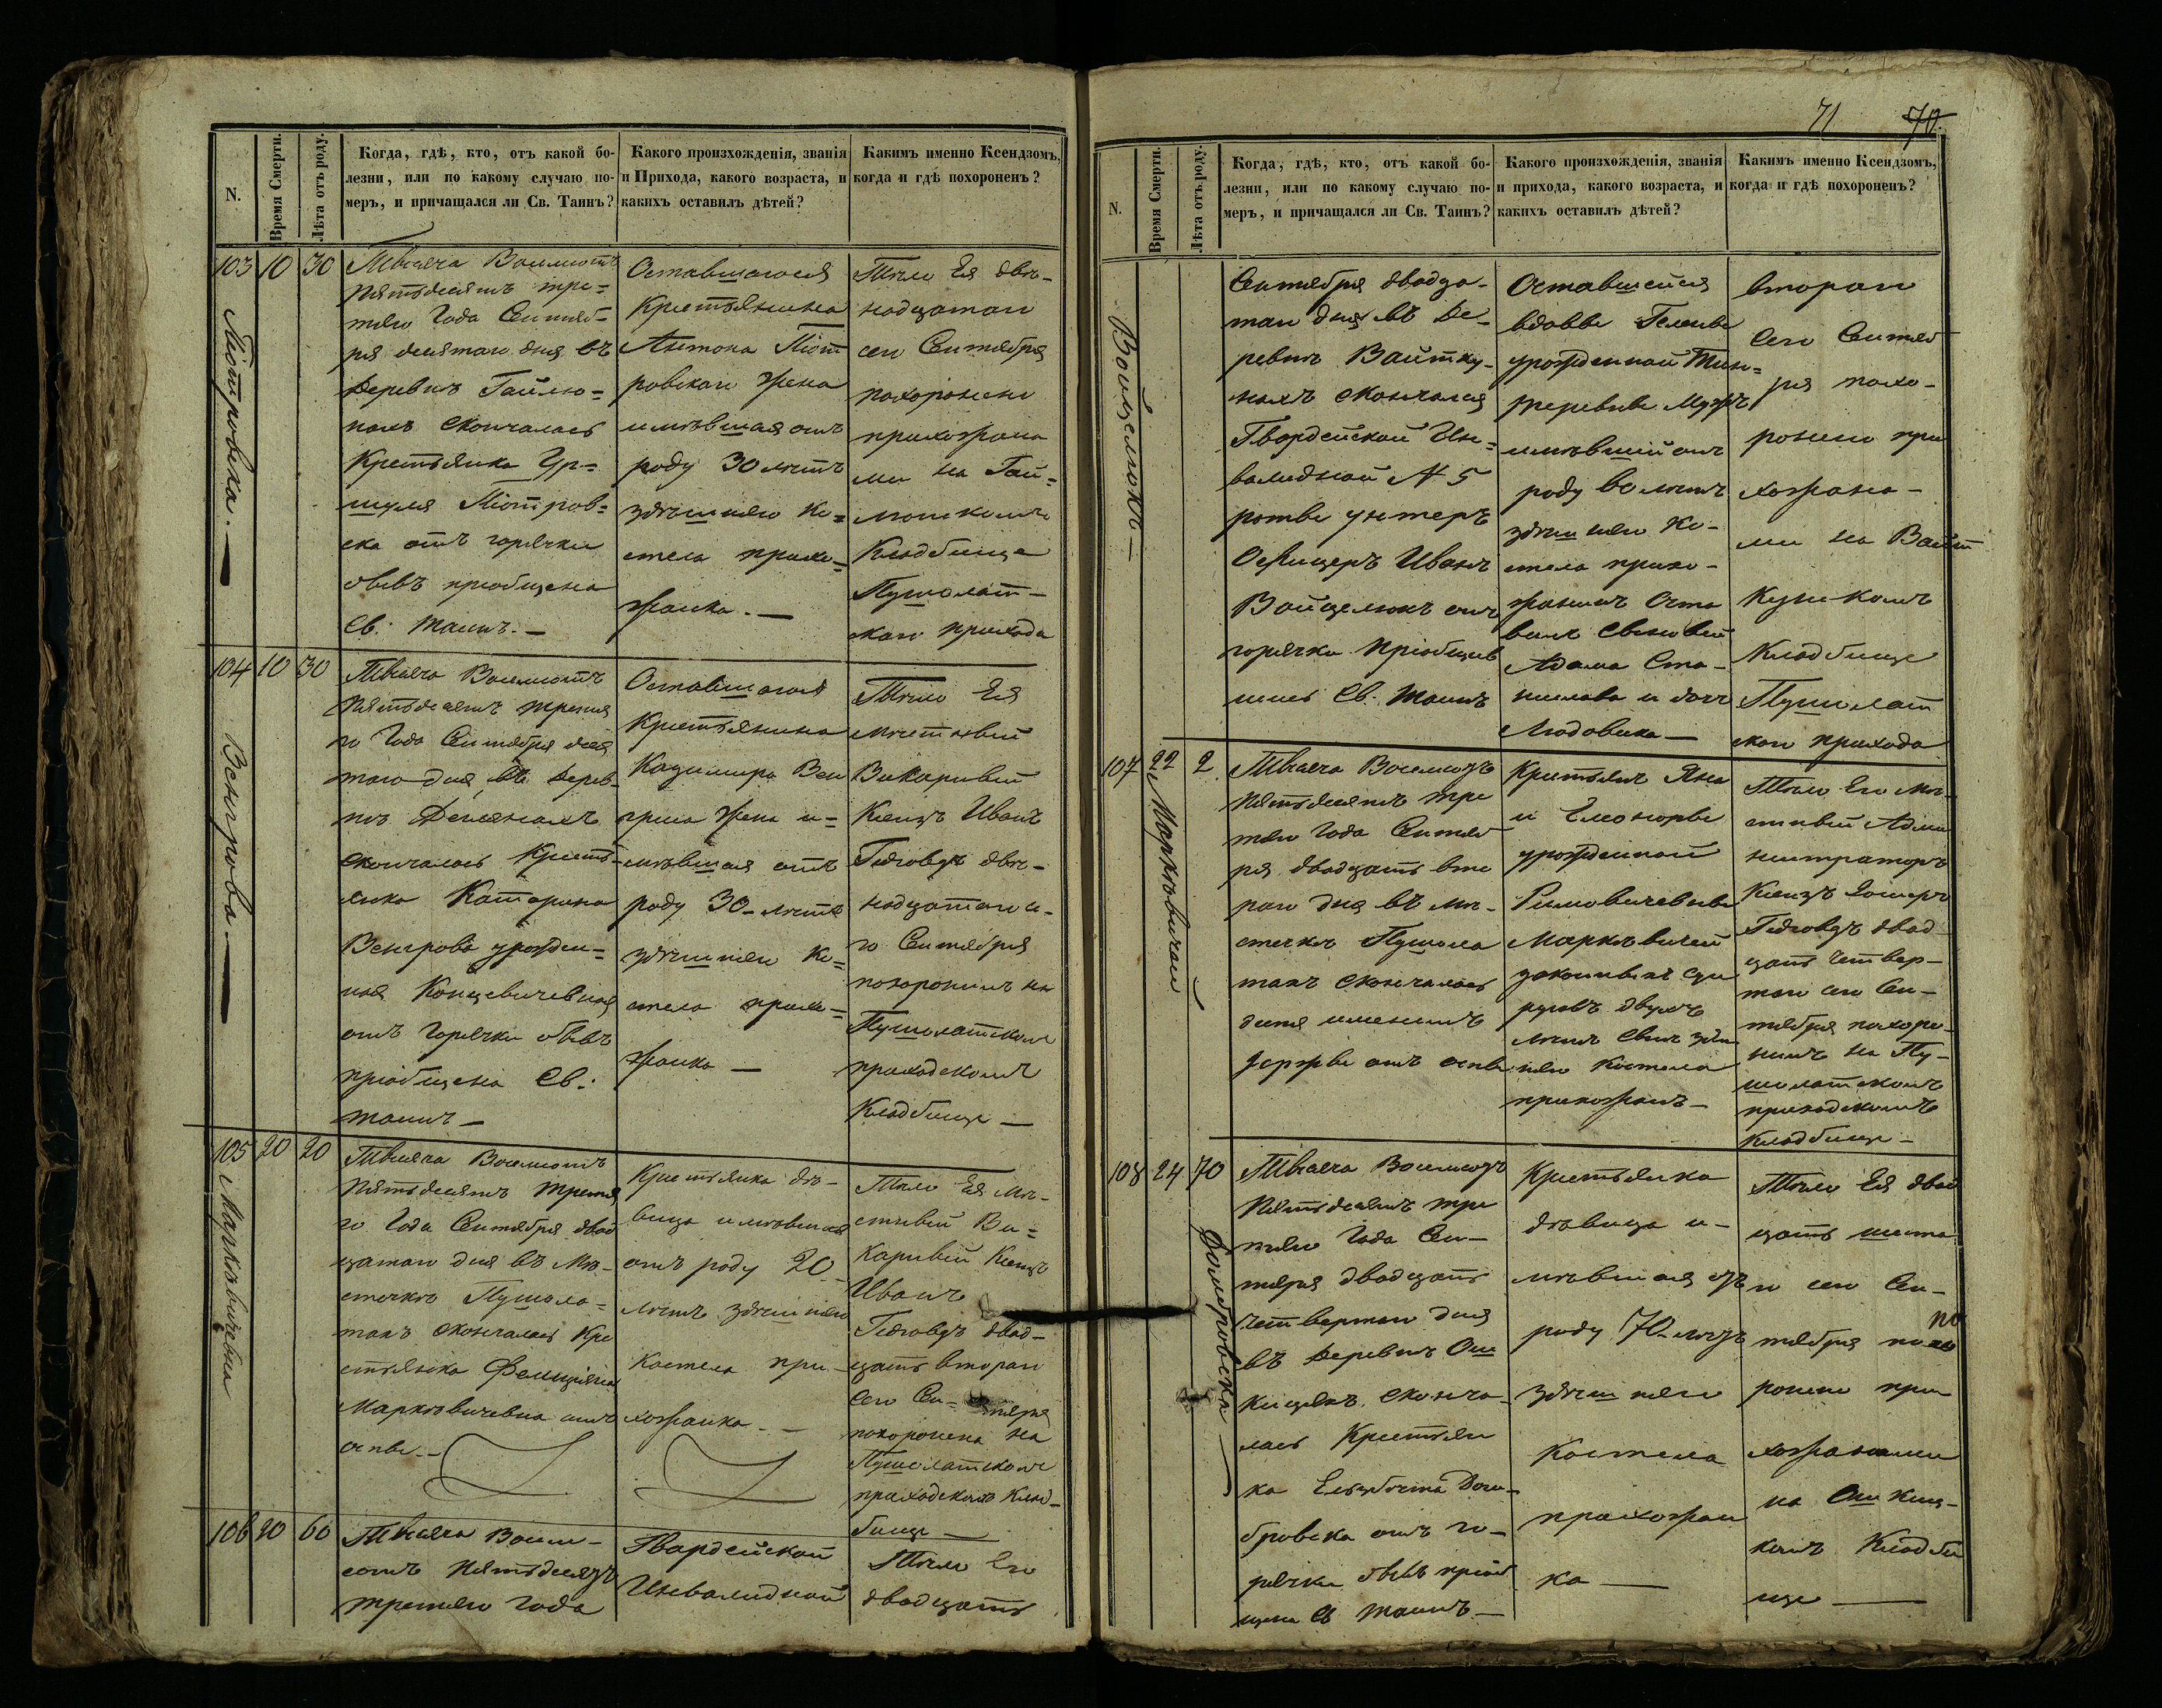 N.
Время Смерти.
Лѣта отъ роду.
Когда, гдѣ, кто, отъ какой бо-
лезни, или по какому случаю по-
меръ, и причащался ли Св. Таинъ?
Какого произхожденія, званія
и Прихода, какого возраста, и
какихъ оставилъ дѣтей?
Какимъ именно Ксендзомъ,
когда и гдѣ похороненъ?
103
10
30
Піотровска.
Тысяча Восмсотъ
пятьдесятъ тре=
тяго Года Сентяб=
ря десятаго дня въ
деревнѣ Гайлю=
нахъ скончалась
Крестьянка Ур=
шуля Піотров=
ска отъ горячки
бывъ пріобщена
Св. таинъ.
Оставшагося
Крестьянина
Антона Піот
ровскаго жена
имѣвшая отъ
роду 30 лѣтъ
здѣшняго Ко=
стела прихо=
жанка.
Тѣло Ея двѣ-
надцатаго
сего Сентября
похоронено
прихожана
ми на Гай=
люнскомъ
Кладбище
Пушолат-
скаго прихода
104
10
30
Венгрова
Тысяча Восмсотъ
пятьдесятъ третя
го Года Сентября деся
таго дня въ дерев-
нѣ
скончалась Кресть-
янка Катарина
Венгрова урожден=
ная Концевичевна
отъ горячки бывъ
пріобщена Св:
таинъ
Оставшагося
Крестьянина
Казимира Вен
гриса жена и=
мѣвшая отъ
роду 30 лѣтъ
здѣшняго Ко=
стела прихо=
жанка
Тѣло Ея
мѣстный
Викарный
Ксендзъ Иванъ
Гедговдъ двѣ-
надцатаго се-
го Сентября
похоронилъ на
Пушолатскомъ
приходскомъ
Кладбище
105
20
20
Марковичевна
Тысяча Восмсотъ
пятьдесятъ третя
го Года Сентября двад
цатаго дня въ мѣ-
стечкѣ Пушола=
тахъ скончалась Кре
стьянка Фелиціяна
Марковичевна отъ
оспы.
Крестьянка дѣ-
вица имѣвшая
отъ роду 20
лѣтъ здѣшняго
Костела при-
хожанка.
Тѣло Ея мѣ-
стный Ви=
карный Ксендзъ
Иванъ
Гедговдъ двад-
цать втораго
сего Сен=тября
похоронена на
Пушолатскомъ
приходскомъ Клад-
бище
106
20
60
Тысяча Восм-
сотъ пятьдесятъ
третяго года
Гвардейской
Инвалидной
Тѣло Его
двадцать
71
70.
N.
Время Смерти.
Лѣта отъ роду.
Когда, гдѣ, кто, отъ какой бо-
лезни, или по какому случаю по-
меръ, и причащался ли Св. Таинъ?
Какого произхожденія, званія
и прихода, какого возраста, и
какихъ оставилъ дѣтей?
Какимъ именно Ксендзомъ,
когда и гдѣ похороненъ?
Войцелюкъ
Сентября двадца-
таго дня въ де-
ревнѣ Вайтку-
нахъ скончался
Гвардейской Ин=
валидной N 5
роты унтеръ
Офицеръ Иванъ
Войцелюкъ отъ
горячки пріобщив
шись Св. таинъ
Оставшейся
вдовы Гелены
урожденной
мужъ
имѣвшій отъ
роду 60 лѣтъ
здѣшняго Ко-
стела прихо-
жанинъ Оста
вилъ сыновей
Адама Ста-
нислава и дочь
Людовика
втораго
сего Сентяб
ря похо-
ронено при
хожана-
ми на Вайт
кунскомъ
Кладбище
Пушолат
скаго прихода
107
22
2
Марковичай
Тысяча Восмсотъ
пятьдесятъ тре
тяго Года Сентяб
ря двадцать вто
раго дня въ мѣ-
стечкѣ Пушола
тахъ скончалось
дитя именемъ
отъ оспы
Крестьянъ Яна
и Елеоноры
урожденной
Марковичей
законныхъ суп
руговъ двухъ
лѣтъ сынъ здѣш
няго Костела
прихожанъ
Тѣло Его мѣ-
стный Адми
нистраторъ
Ксендзъ
Гедговдъ двад
цать четвер-
таго сего Сен-
тября похоро-
нилъ на Пу-
шолатскомъ
приходскомъ
Кладбище
108
24
70
Домбровска
Тысяча Восмсотъ
пятьдесятъ тре
тяго Года Сен-
тября двадцать
четвертаго дня
въ деревнѣ Ош
кицяхъ сконча-
лась Крестьян
ка Елизбѣта Дом-
бровска отъ го-
рячки бывъ пріоб
щена Св таинъ
Крестьянка
дѣвица и-
мѣвшая отъ
роду 70 лѣтъ
здѣшняго
Костела
прихожан
ка
Тѣло Ея двад
цать шеста
го сего Сен-
тября похо
ронено при
хожанами
на Ошкиц-
комъ Кладби
ще